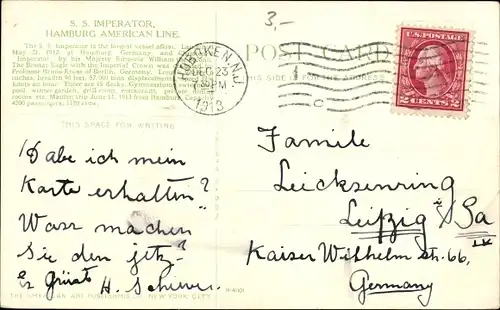 3,-
S. S. IMPERATOR,
HAMBURG AMERICAN LINE.
The S. S. Imperator is the largest vessel afloat.
May 23, 1912 at Hamburg, Germany, and
Imperator by his Majesty Emperor William
The Bronze Eagle with the Imperial Crown was
Professor Bruno Kruse of Berlin, Germany.
inches, breadth 96 feet, 57,000 tons displacement
knots an hour.
pool, winter garden, grill room,
rooms etc. Maiden trip June 11, 1913 from Hamburg
4200 passengers, 1120 crew.
POST CARD
THIS SIDE IS FOR THE ADDRESS
HOBOKEN, N.J.
DEC 23
PM
1913
U.S. POSTAGE
2 CENTS 2
THIS SPACE FOR WRITING
Dabe ich mein
Karte erhalten?
Was machen
Sie den jetz?
es Grüsst H.
Familie
Leicksenring
Leipzig Sa
Kaiser Wilhelm str. 66,
IV
Germany
THE AMERICAN ART PUBLISHING Co. NEW YORK CITY